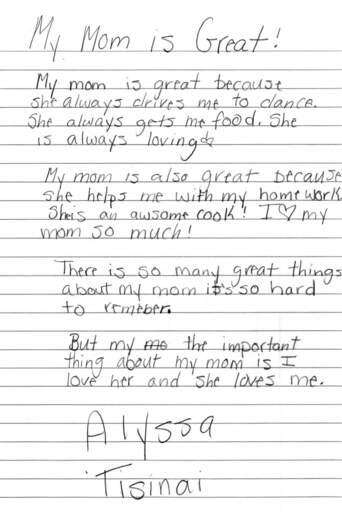 My Mom is Great!
My mom is great because
she always drives me to dance.
She always gets me food. She
is always loving☆
My mom is also great because
she helps me with my homework
Sheis an awsome cook! I ♡ my
mom so much!
There is so many great things
about my mom it's so hard
to remeber.
But my mo the important
thing about my mom is I
love her and she loves me.
Alyssa
Tisinai